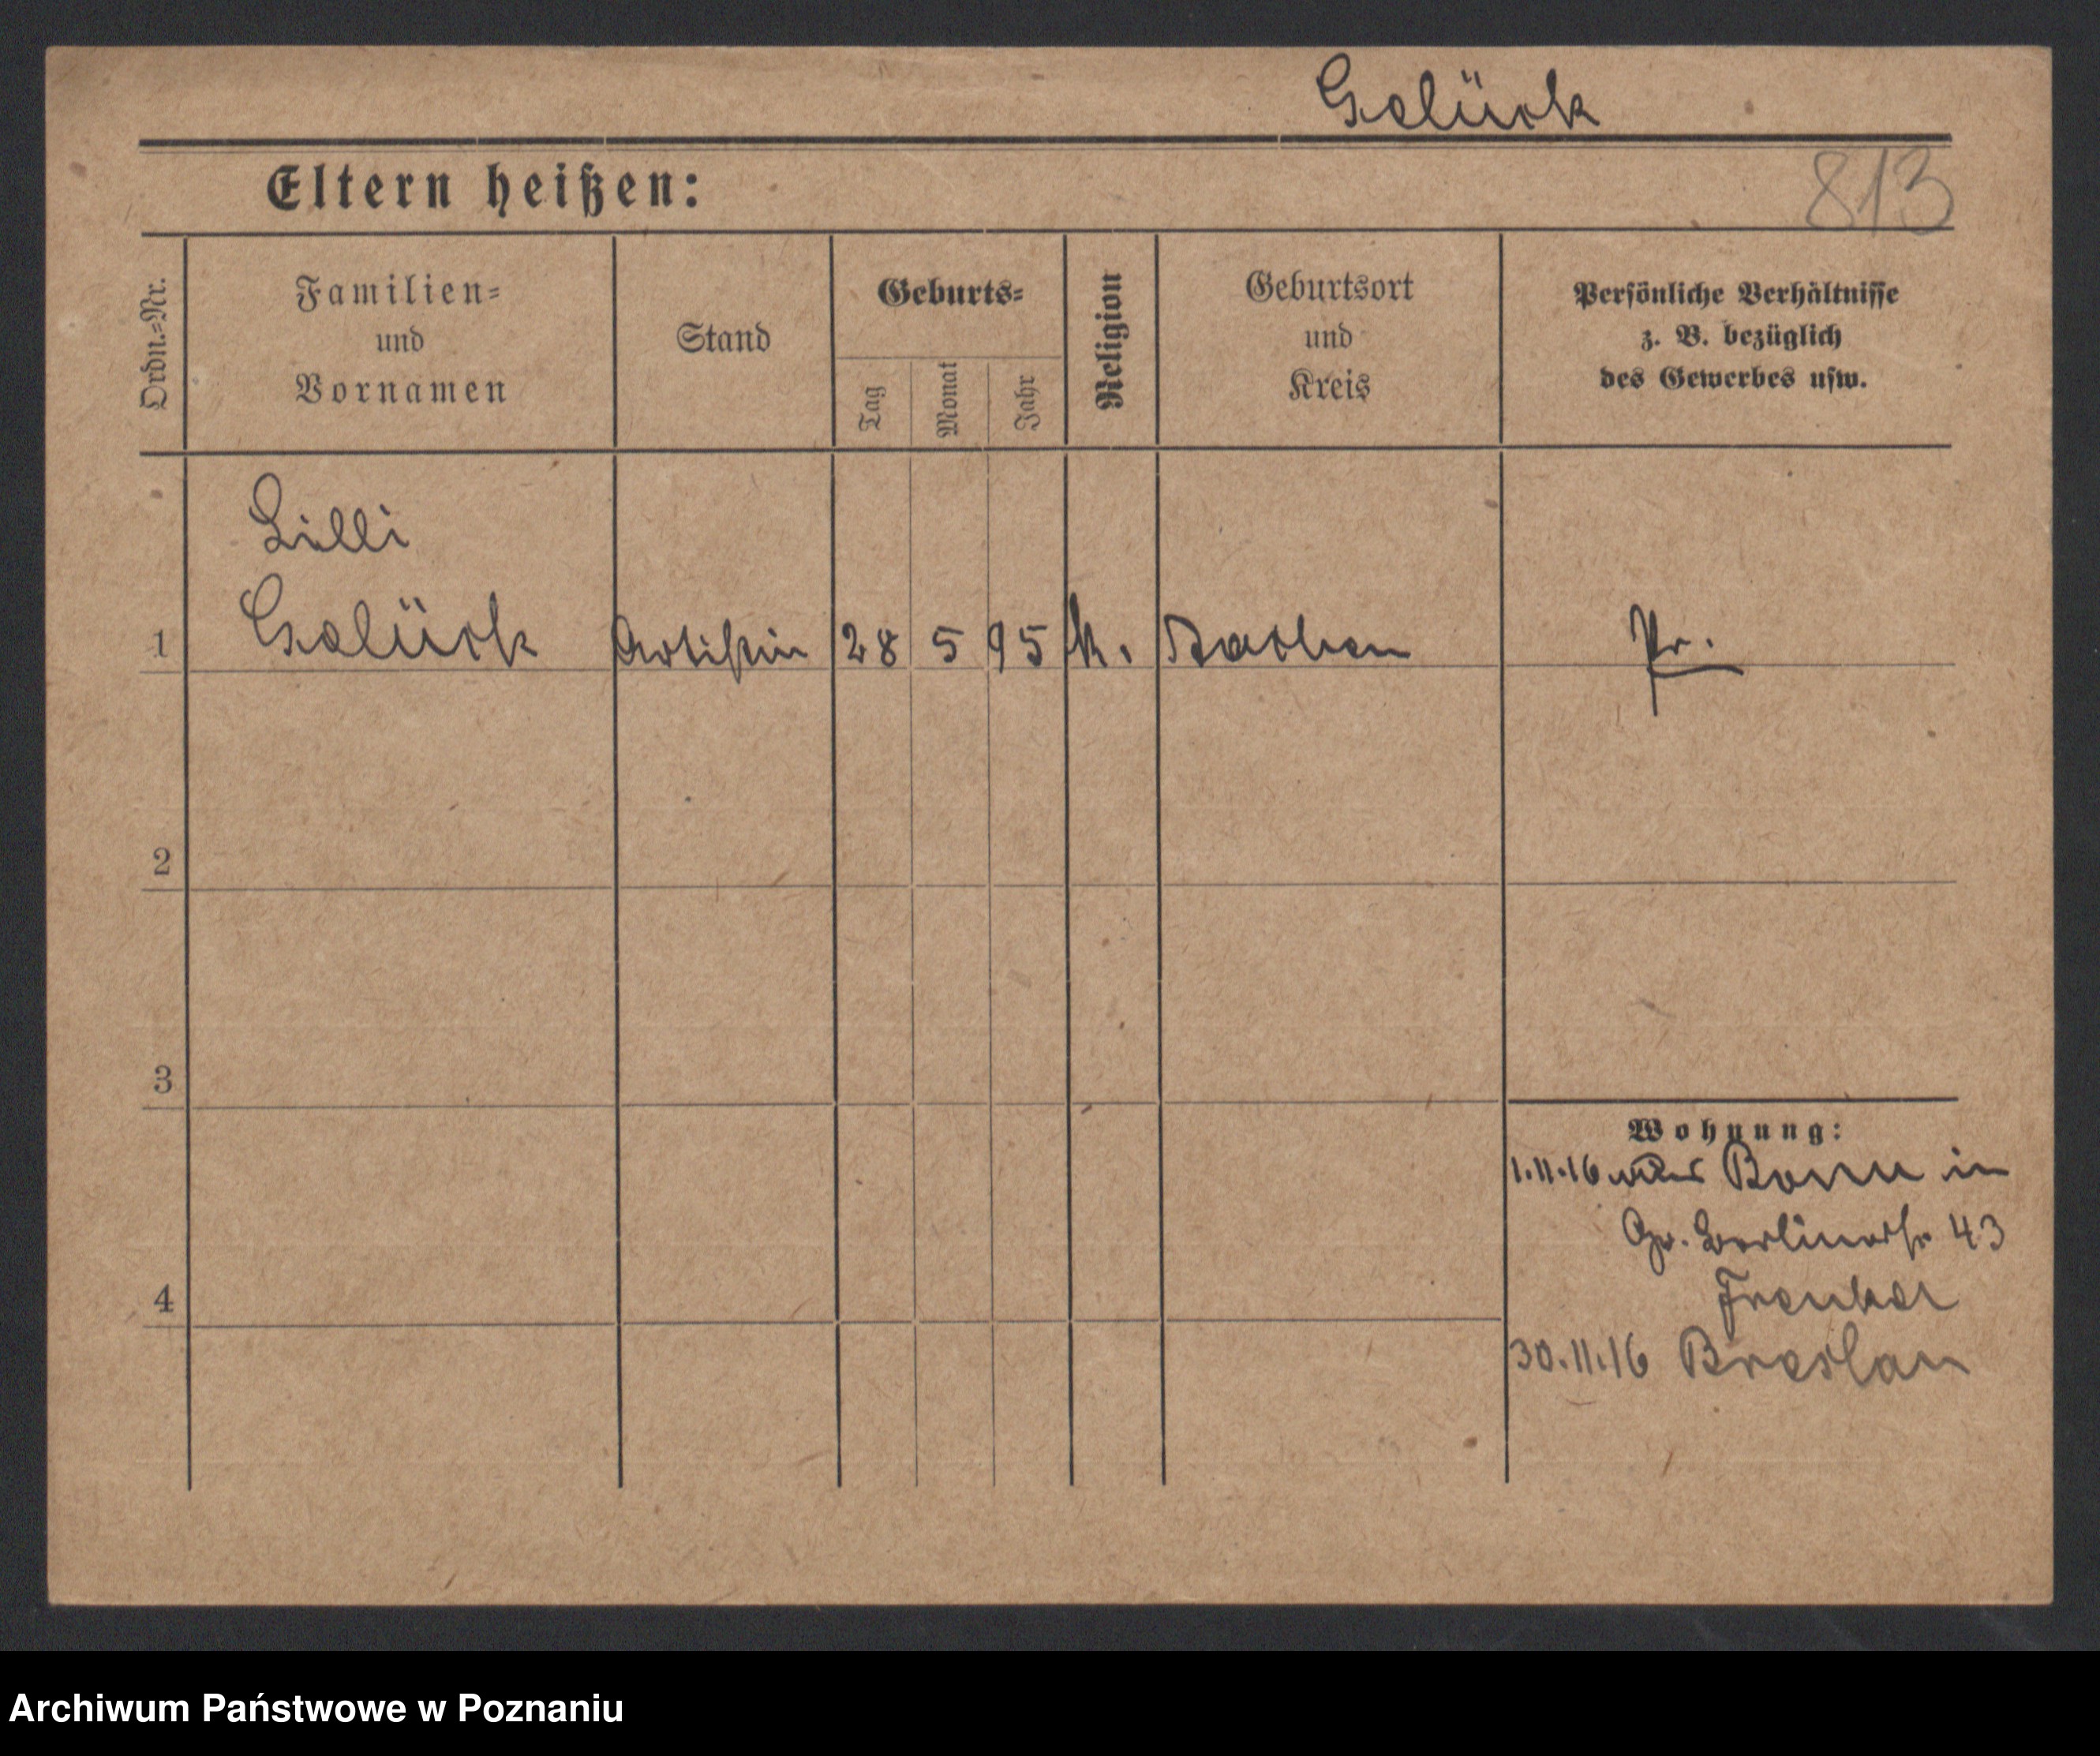 Gelück
Eltern heißen:
813
Ordn.=Nr.
Familien=
und
Vornamen
Stand
Geburts=
Tag
Monat
Jahr
Religion
Geburtsort
und
Kreis
Persönliche Verhältnisse
z. B. bezüglich
des Gewerbes usw.
Lilli
1 Gelück Artistin 28 5 95 k. Aachen Pr.
2
3
Wohnung:
1.11.16 Bonn in
Gr. Berlinerstr 43
4
30.11.16 Breslau
Archiwum Państwowe w Poznaniu